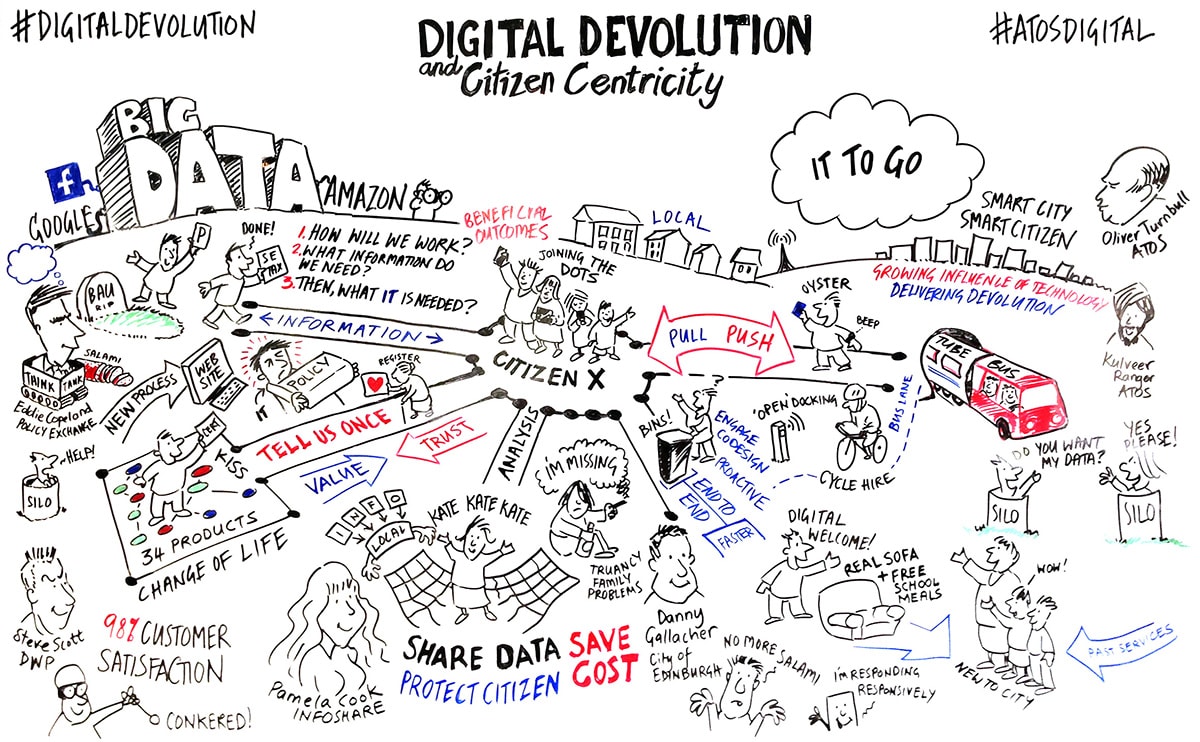 #DIGITALDEVOLUTION
DIGITAL DEVOLUTION
and Citizen Centricity
#ATOSDIGITAL
BIG
DATA
f
GOOGLE
AMAZON
IT TO GO
SMART CITY
SMART CITIZEN
Oliver Turnbull
ATOS
BAU
RIP
P
DONE!
SE
TAX
1. HOW WILL WE WORK?
2. WHAT INFORMATION DO
WE NEED?
3. THEN, WHAT IT IS NEEDED?
BENEFICIAL
OUTCOMES
JOINING THE
DOTS
LOCAL
GROWING INFLUENCE OF TECHNOLOGY
DELIVERING DEVOLUTION
OYSTER
BEEP
Kulveer
Ranger
ATOS
INFORMATION
CITIZEN X
PULL PUSH
TUBE
BUS
BUS LANE
SALAMI
THINK TANK
Eddie Copeland
POLICY EXCHANGE
NEW PROCESS
WEB
SITE
IT
POLICY
REGISTER
TELL US ONCE
TRUST
VALUE
ANALYSIS
I'M MISSING
BINS!
ENGAGE
CODESIGN
PROACTIVE
END TO
END
FASTER
'OPEN DOCKING
CYCLE HIRE
DO YOU WANT
MY DATA?
YES
PLEASE!
SILO
SILO
HELP!
SILO
CERT
KISS
34 PRODUCTS
CHANGE OF LIFE
INFO
LOCAL
KATE KATE KATE
TRUANCY
FAMILY
PROBLEMS
Danny
Gallacher
City of
EDINBURGH
DIGITAL
WELCOME!
REAL SOFA
+ FREE
SCHOOL
MEALS
WOW!
NEW TO CITY
PAST SERVICES
Steve Scott
DWP
98% CUSTOMER
SATISFACTION
CONKERED!
Pamela Cook
INFOSHARE
SHARE DATA
PROTECT CITIZEN
SAVE
COST
NO MORE SALAMI
I'M RESPONDING
RESPONSIVELY